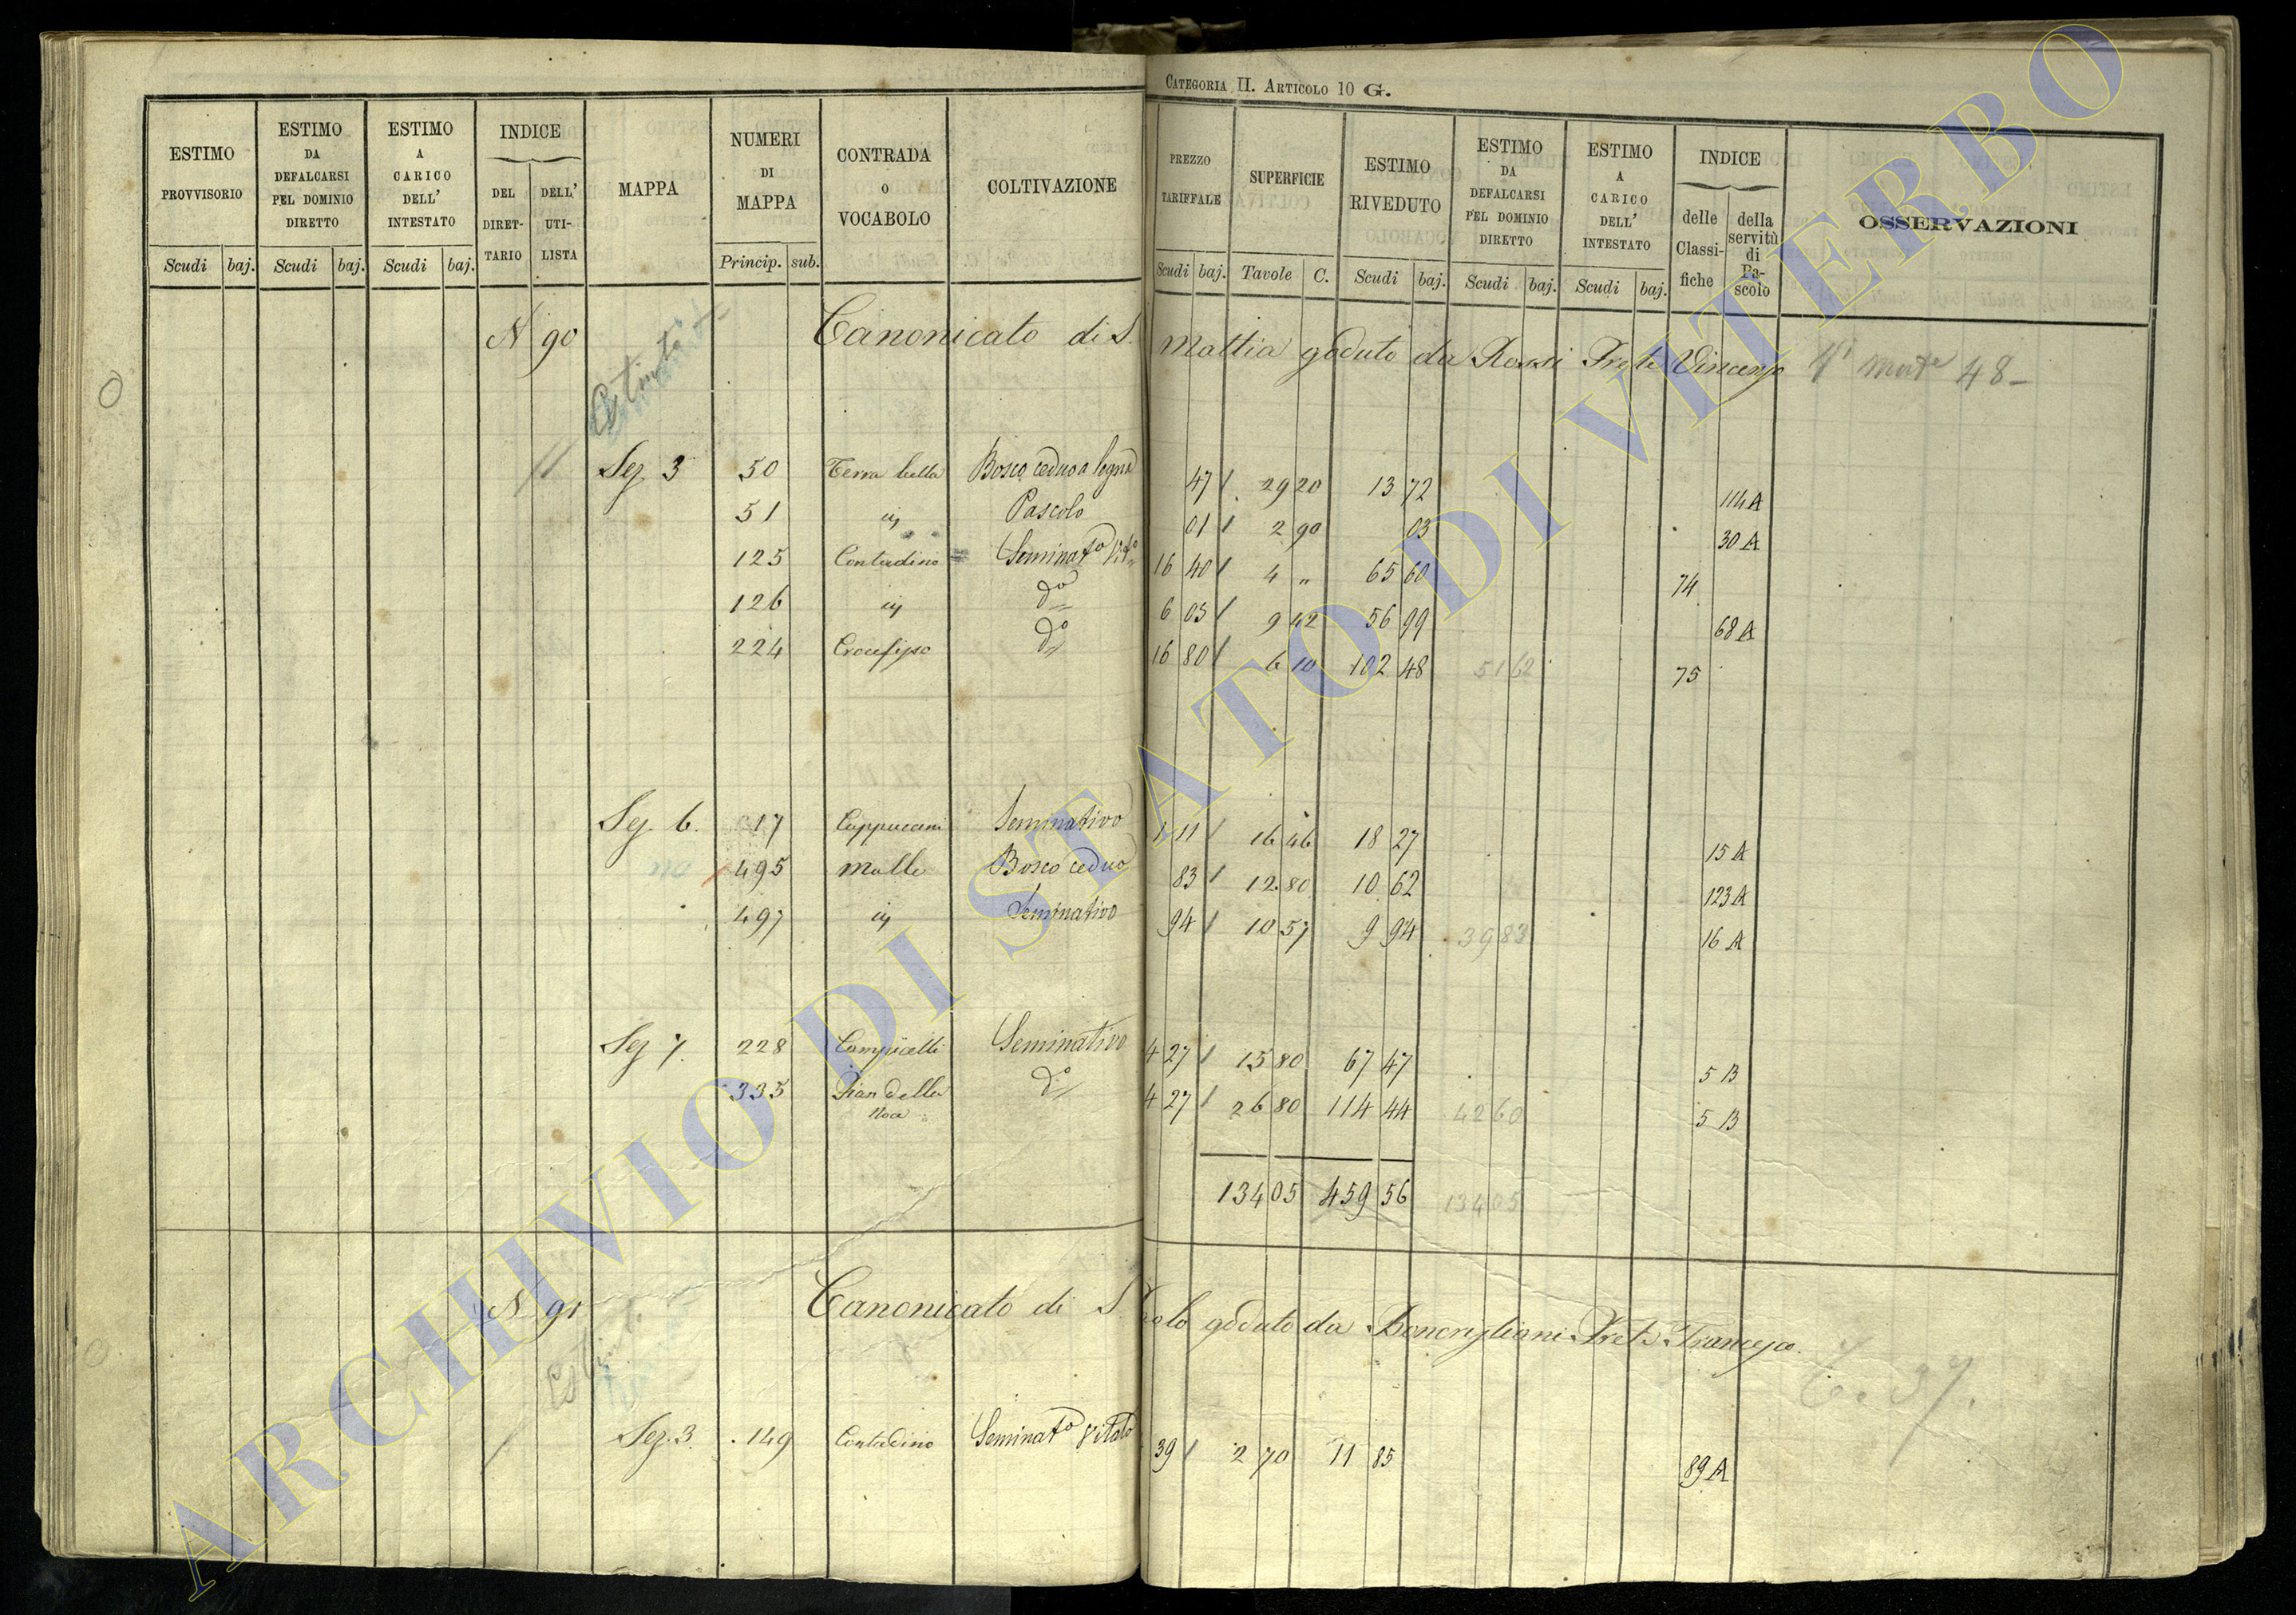 Categoria II. Articolo 10 G.
ESTIMO PROVVISORIO Scudi baj.
ESTIMO DA DEFALCARSI PEL DOMINIO DIRETTO Scudi baj.
ESTIMO A CARICO DELL' INTESTATO Scudi baj.
INDICE DEL DIRETTARIO DELL' UTILISTA
MAPPA
NUMERI DI MAPPA Princip. sub.
CONTRADA O VOCABOLO
COLTIVAZIONE
PREZZO TARIFFALE Scudi baj.
SUPERFICIE Tavole C.
ESTIMO RIVEDUTO Scudi baj.
ESTIMO DA DEFALCARSI PEL DOMINIO DIRETTO Scudi baj.
ESTIMO A CARICO DELL' INTESTATO Scudi baj.
INDICE delle Classifiche della servitù di Pascolo
OSSERVAZIONI
N 90 Canonicato di S. Mattia goduto da Rossi Prete Vincenzo 48
Estinto
Sez. 3 50 Terra bella Bosco ceduo a legna 47 29 20 13 72 114 A
51 iij Pascolo 01 2 90 03 30 A
125 Contadino Seminato Vit° 16 40 4 " 65 60 74
126 iij d° 6 05 9 42 56 99 68 A
224 Crocifisso d° 16 80 6 10 102 48 51 62 75
Sez. 6. 217 Cappuccini Seminativo 1 11 16 46 18 27 15 A
495 Malle Bosco ceduo 83 12 80 10 62 123 A
497 iij Seminativo 94 10 57 9 94 39 83 16 A
Sez 7. 228 Campicelli Seminativo 4 27 15 80 67 47 5 B
335 Pian della Noce d° 4 27 26 80 114 44 42 60 5 B
134 05 459 56 134 05
N. 91 Canonicato di S. goduto da Prete Francesco.
Estinto
Sez. 3. 149 Contadino Seminato Vitato 39 2 70 11 85 89 A
ARCHIVIO DI STATO DI VITERBO